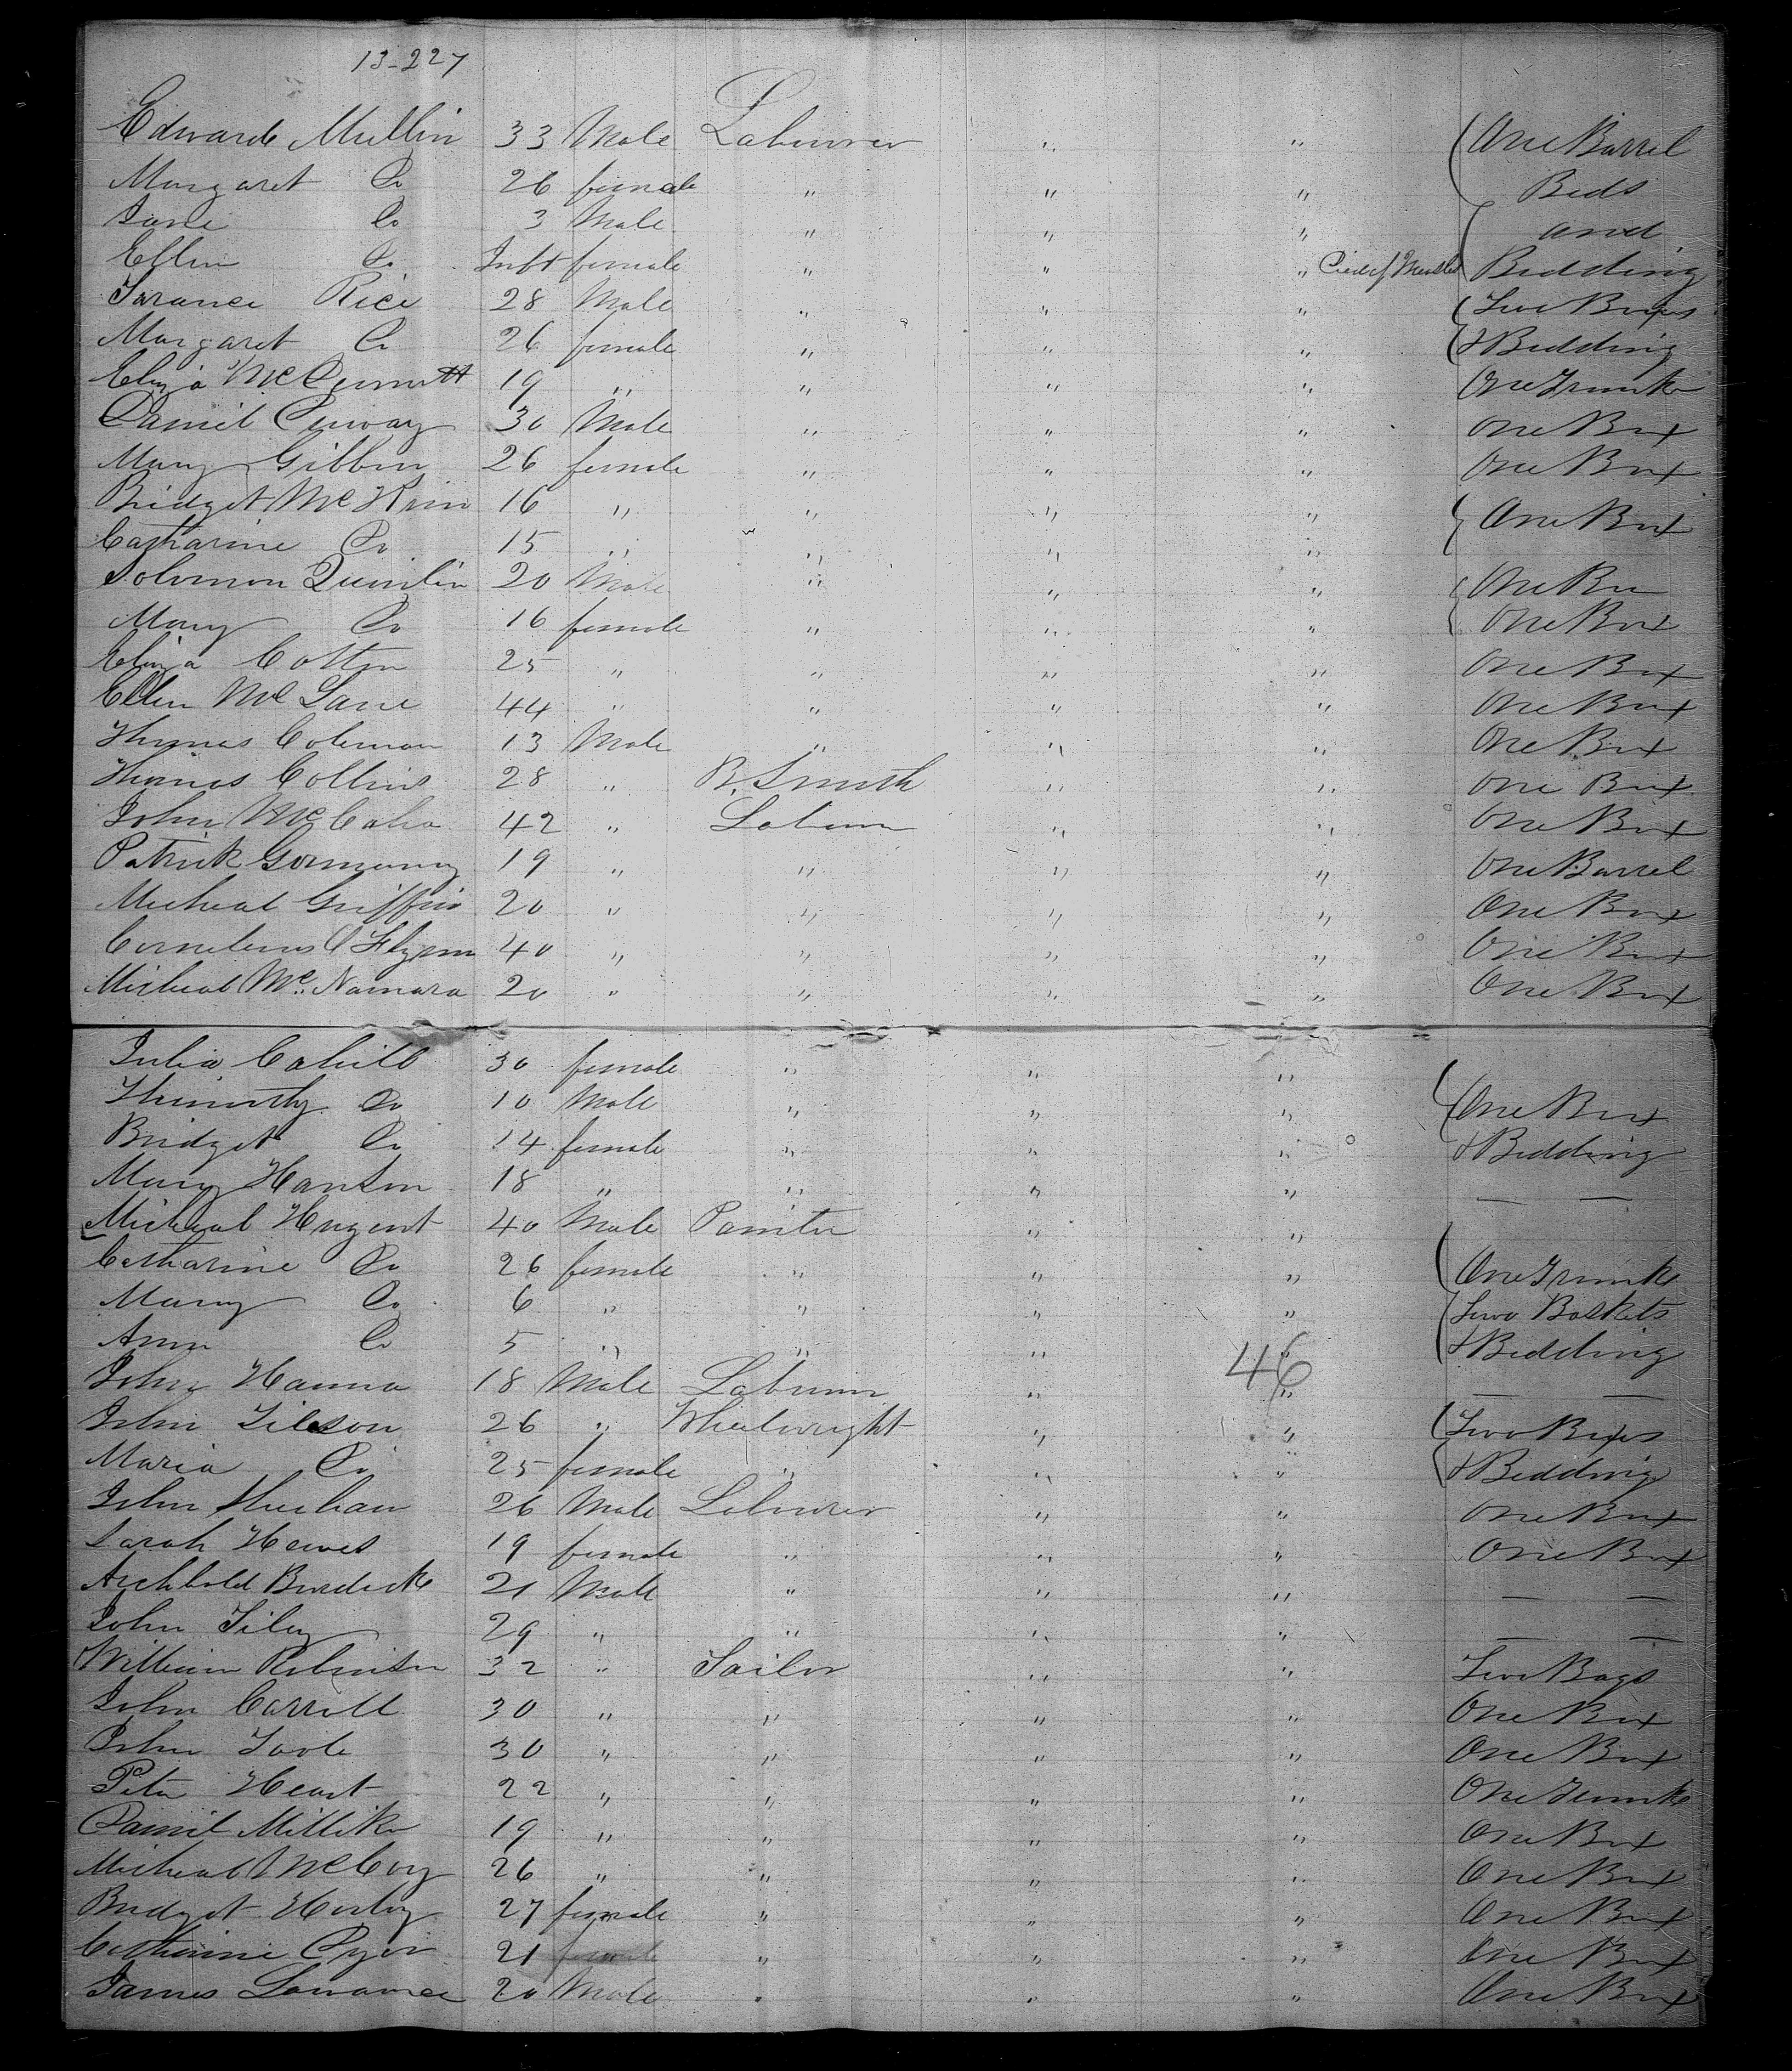 13-227
Edward Mullin 33 Male Labourer " " One Barrel
Margaret Do 26 female " " " Beds
Jane Do 3 Male " " " and
Ellen Do Inft female " " " Died of Measles Bedding
Tarance Rice 28 Male " " " Two Boxes
Margaret Do 26 female " " " & Bedding
Eliza McDermott 19 " " " " One Trunk
Daniel Conway 30 Male " " " One Box
Mary Gibbon 26 female " " " One Box
Bridget Mc 16 " " " " One Box
Catharine Do 15 " " " "
Solomon Quinlin 20 Male " " " One Box
Mary Do 16 female " " " One Box
Eliza Cotton 25 " " " " One Box
Ellen McLane 44 " " " " One Box
Thomas Coleman 13 Male " " " One Box
Thomas Collins 28 " B. Smith " " One Box
John McCabe 42 " Labour " " One Box
Patrick 19 " " " " One Barrel
Micheal Griffin 20 " " " " One Box
Cornelius O Flynn 40 " " " One Box
Micheal Mc Namara 20 " " " " One Box
Julia Cahill 30 female " " "
Thimothy Do 10 Male " " " One Box
Bridget Do 14 female " " " & Bedding
Mary Hanson 18 " " " " — —
Micheal Nugent 40 Male Painter " "
Catharine Do 26 female " " " One Trunk
Mary Do 6 " " " " Two Baskets
Ann Do 5 " " " " & Bedding
46
John Hanna 18 Male Labourer " " — —
John Tilson 26 " Wheelwright " " Two Boxes
Maria Do 25 female " " " & Bedding
John Sheehan 26 Male Labourer " " One Box
Sarah Hewes 19 female " " " One Box
Archbold Burdick 21 Male " " " — —
John Tiley 29 " " " " — —
William Robinson 32 " Sailor " " Two Bags
John Carroll 30 " " " " One Box
John Toole 30 " " " " One Box
Peter Heart 22 " " " " One Trunk
Daniel Milliken 19 " " " " One Box
Micheal McCoy 26 " " " " One Box
Bridget 27 female " " " One Box
Catharine 21 female " " " One Box
James Lawrance 20 Male " " " One Box